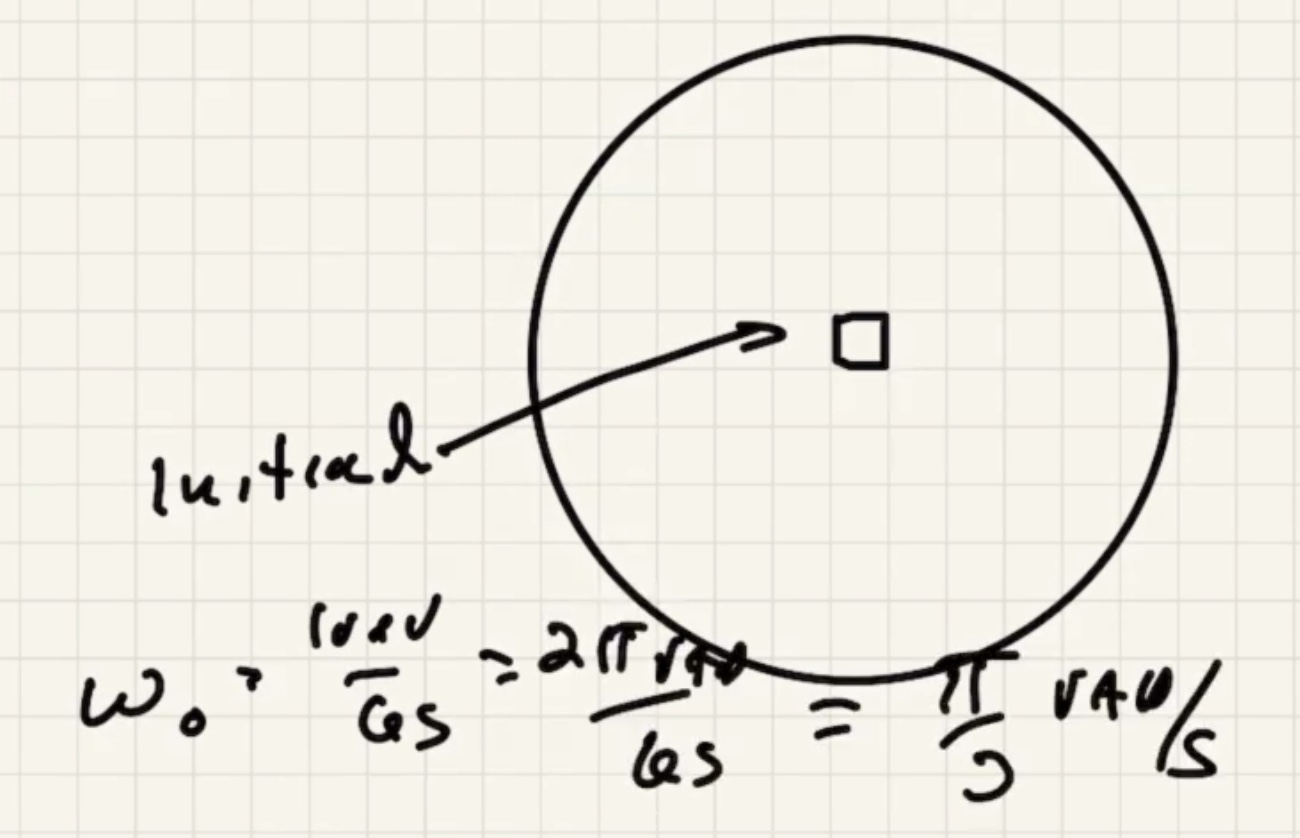 Initial
ω₀ = 1 rev / 6s = 2π rad / 6s = π / 3 rad/s